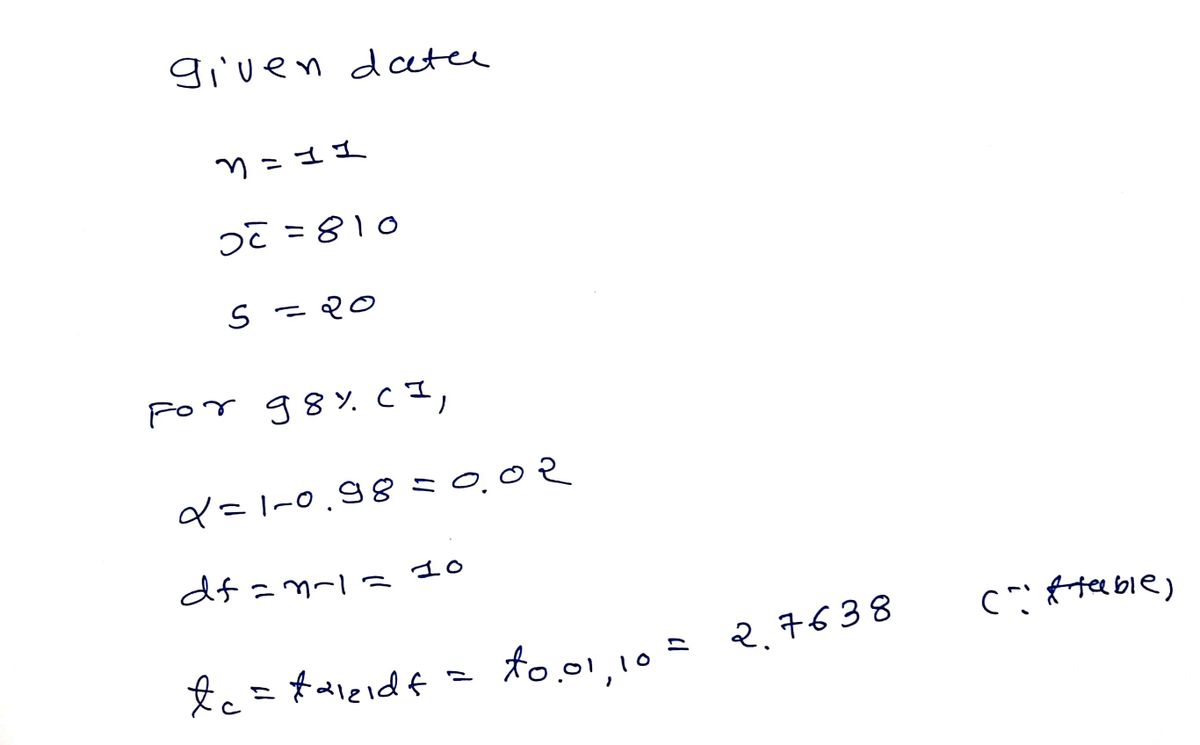 given data
n = 11
x̄ = 810
s = 20
For 98% CI,
α = 1-0.98 = 0.02
df = n-1 = 10
tc = tα/2,df = t0.01,10 = 2.7638 (∵ t table)